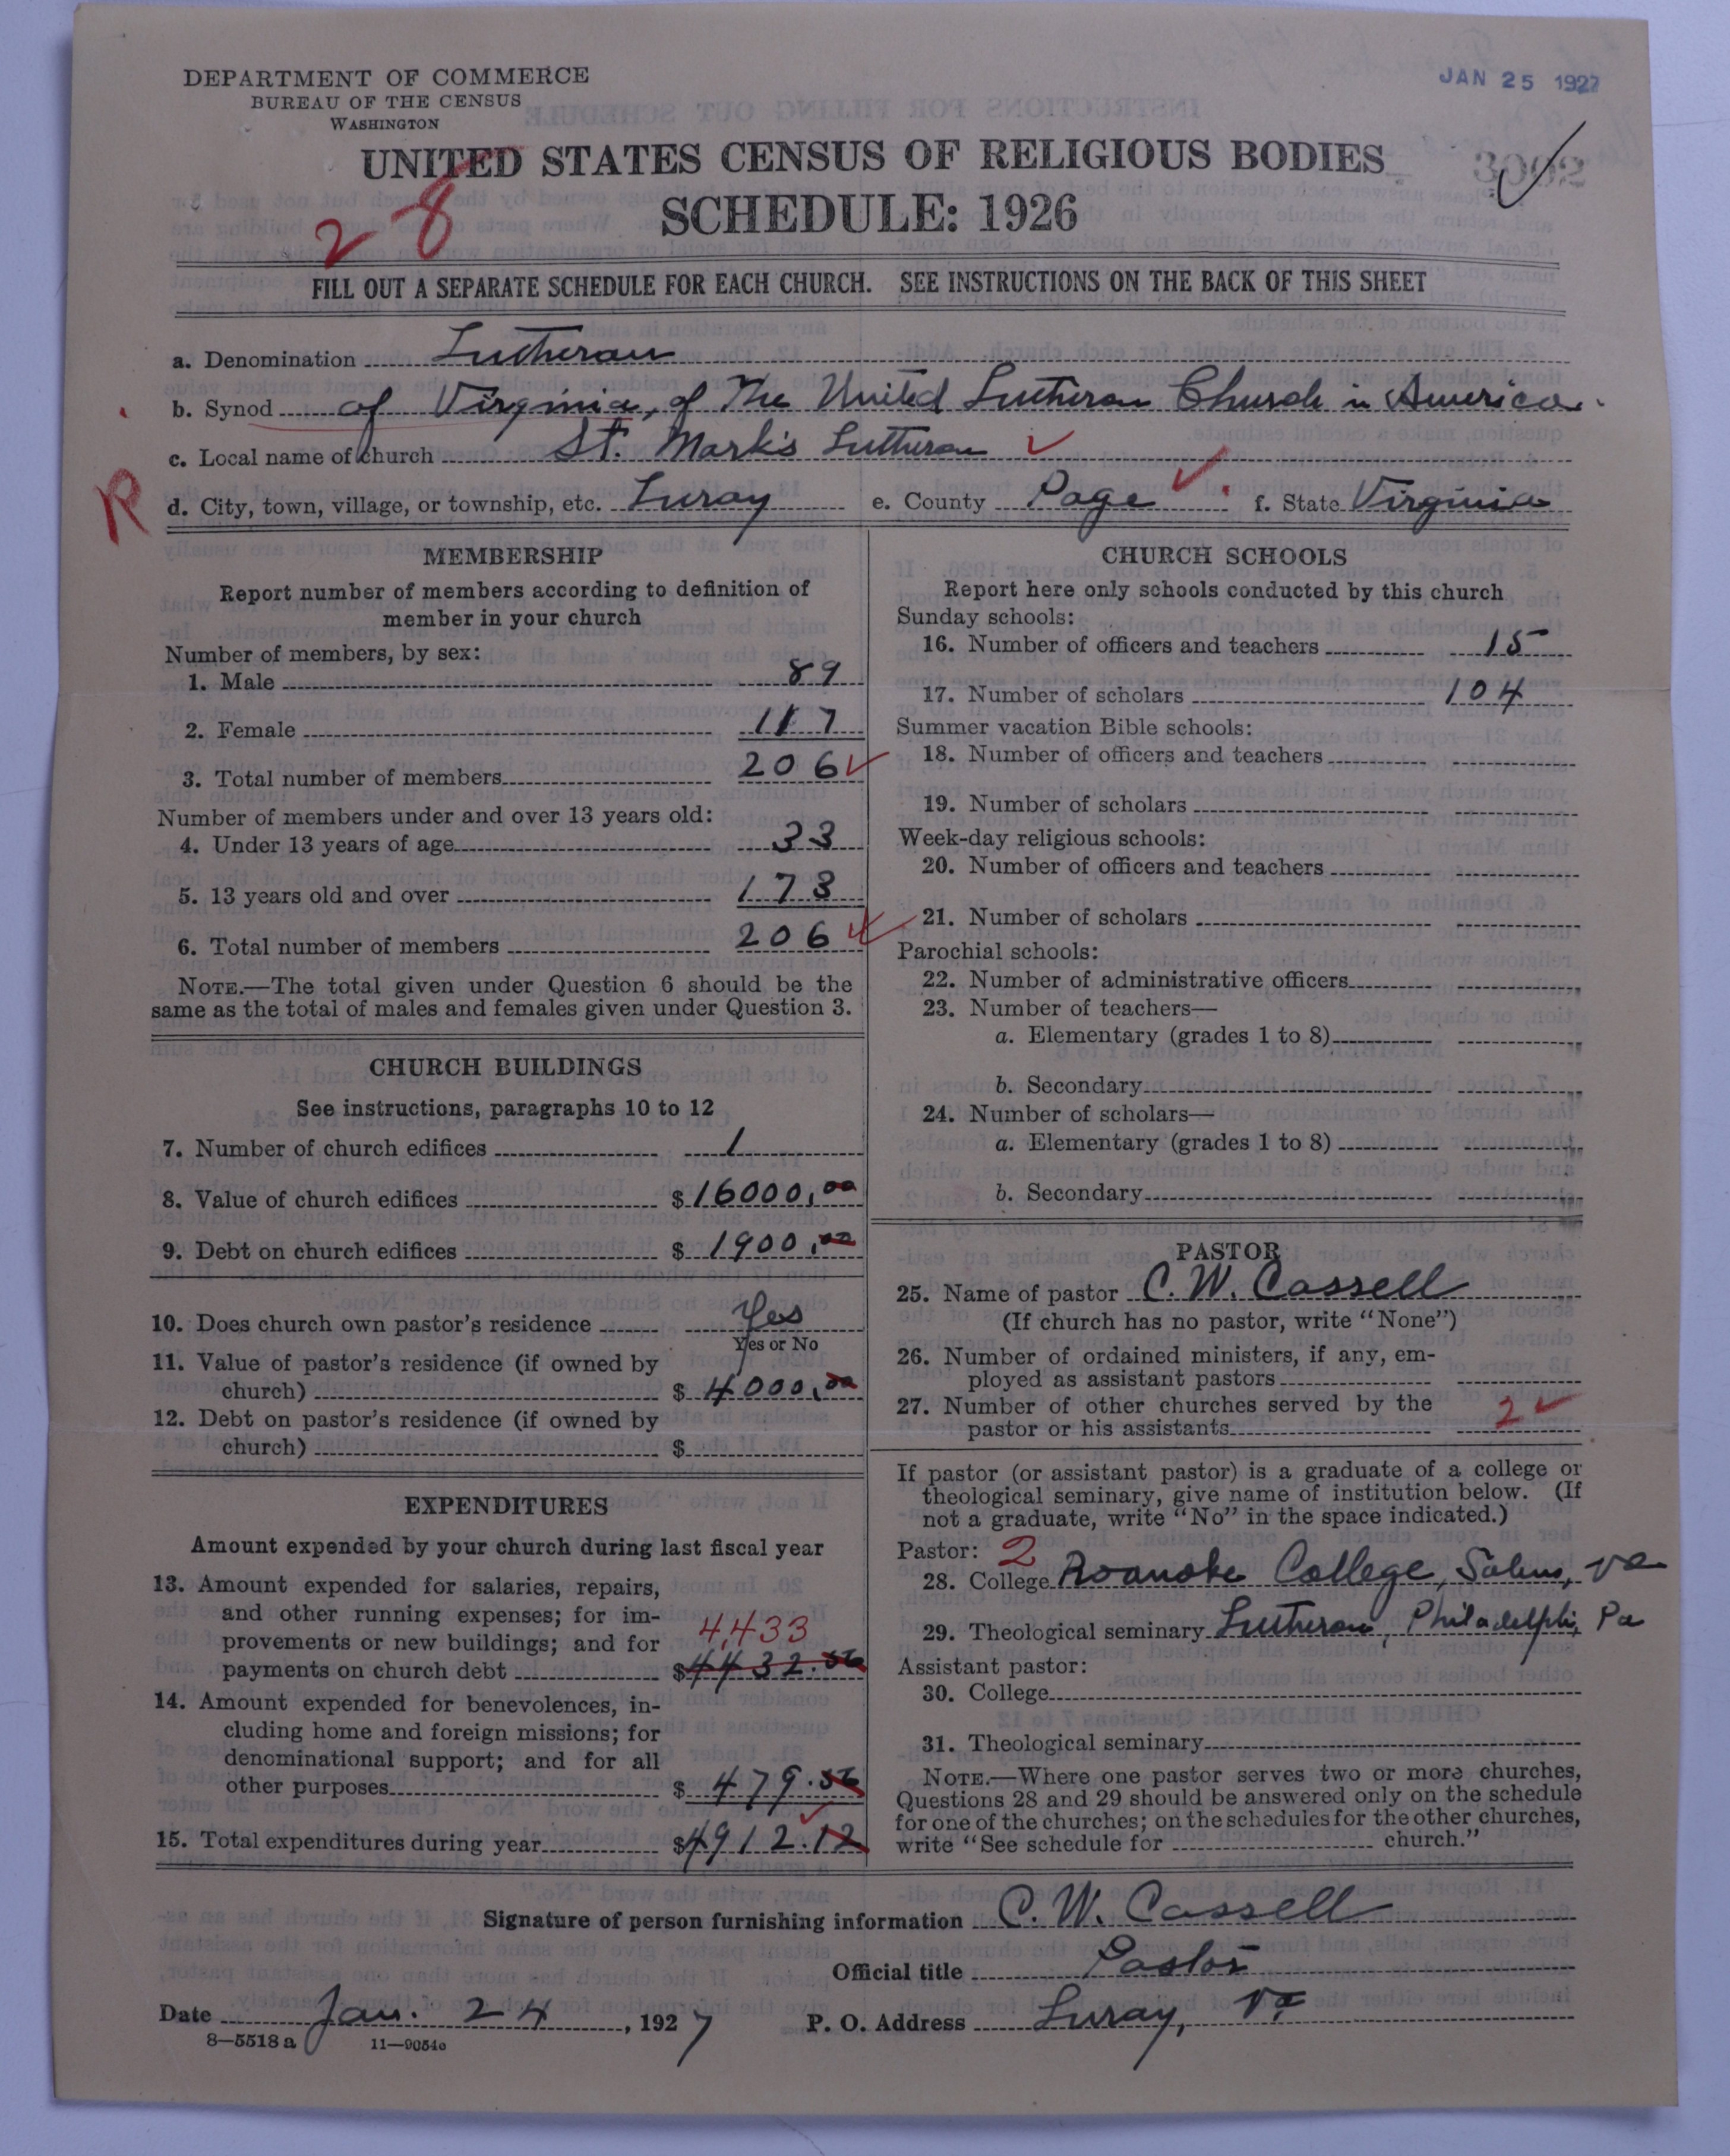 DEPARTMENT OF COMMERCE
BUREAU OF THE CENSUS
WASHINGTON
JAN 25 1927
UNITED STATES CENSUS OF RELIGIOUS BODIES
3002
28
SCHEDULE: 1926
FILL OUT A SEPARATE SCHEDULE FOR EACH CHURCH. SEE INSTRUCTIONS ON THE BACK OF THIS SHEET
a. Denomination Lutheran
b. Synod of Virginia, of The United Lutheran Church in America.
c. Local name of church St. Mark's Lutheran
R
d. City, town, village, or township, etc. Luray e. County Page f. State Virginia
MEMBERSHIP
Report number of members according to definition of
member in your church
Number of members, by sex:
1. Male 89
2. Female 117
3. Total number of members 206
Number of members under and over 13 years old:
4. Under 13 years of age 33
5. 13 years old and over 173
6. Total number of members 206
NOTE.—The total given under Question 6 should be the
same as the total of males and females given under Question 3.
CHURCH BUILDINGS
See instructions, paragraphs 10 to 12
7. Number of church edifices 1
8. Value of church edifices $16000,00
9. Debt on church edifices $1900,00
10. Does church own pastor's residence Yes
Yes or No
11. Value of pastor's residence (if owned by
church) $4000,00
12. Debt on pastor's residence (if owned by
church) $
EXPENDITURES
Amount expended by your church during last fiscal year
13. Amount expended for salaries, repairs,
and other running expenses; for im-
provements or new buildings; and for 4,433
payments on church debt $4432.56
14. Amount expended for benevolences, in-
cluding home and foreign missions; for
denominational support; and for all
other purposes $479.56
15. Total expenditures during year $4912.12
CHURCH SCHOOLS
Report here only schools conducted by this church
Sunday schools:
16. Number of officers and teachers 15
17. Number of scholars 104
Summer vacation Bible schools:
18. Number of officers and teachers
19. Number of scholars
Week-day religious schools:
20. Number of officers and teachers
21. Number of scholars
Parochial schools:
22. Number of administrative officers
23. Number of teachers—
a. Elementary (grades 1 to 8)
b. Secondary
24. Number of scholars—
a. Elementary (grades 1 to 8)
b. Secondary
PASTOR
25. Name of pastor C. W. Cassell
(If church has no pastor, write "None")
26. Number of ordained ministers, if any, em-
ployed as assistant pastors
27. Number of other churches served by the
pastor or his assistants 2
If pastor (or assistant pastor) is a graduate of a college or
theological seminary, give name of institution below. (If
not a graduate, write "No" in the space indicated.)
Pastor: 2
28. College Roanoke College, Salem, Va
29. Theological seminary Lutheran, Philadelphi, Pa
Assistant pastor:
30. College
31. Theological seminary
NOTE.—Where one pastor serves two or more churches,
Questions 28 and 29 should be answered only on the schedule
for one of the churches; on the schedules for the other churches,
write "See schedule for church."
Signature of person furnishing information C. W. Cassell
Official title Pastor
Date Jan. 24, 1927 P. O. Address Luray, Va
8—5518 a 11—9054c